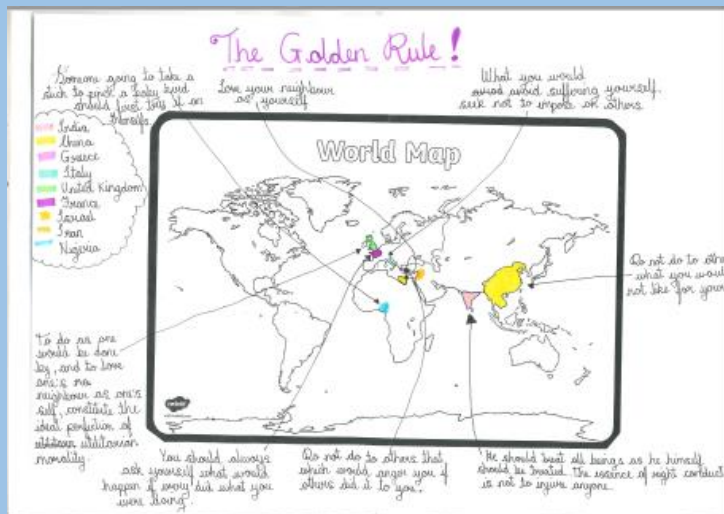 The Golden Rule!
Someone going to take a
stick to pinch a baby bird
should first try it on
themselfs.
Love your neighbour
as yourself
What you would
avoid avoid suffering yourself.
seek not to impose on others.
India
China
Greece
Italy
United Kingdom
France
Israel
Iran
Nigeria
World Map
Do not do to othe
what you would
not like for your
To do as one
would be done
by, and to love
one's
neighbour as one's
self, constitute the
ideal perfection of
utilitarian
morality.
You should always
ask yourself what would
happen if every did what you
were doing.
Do not do to others that
which would anger you if
others did it to you.
He should treat all beings as he himself
should be treated. The essence of right conduct
is not to injure anyone.
twinkl